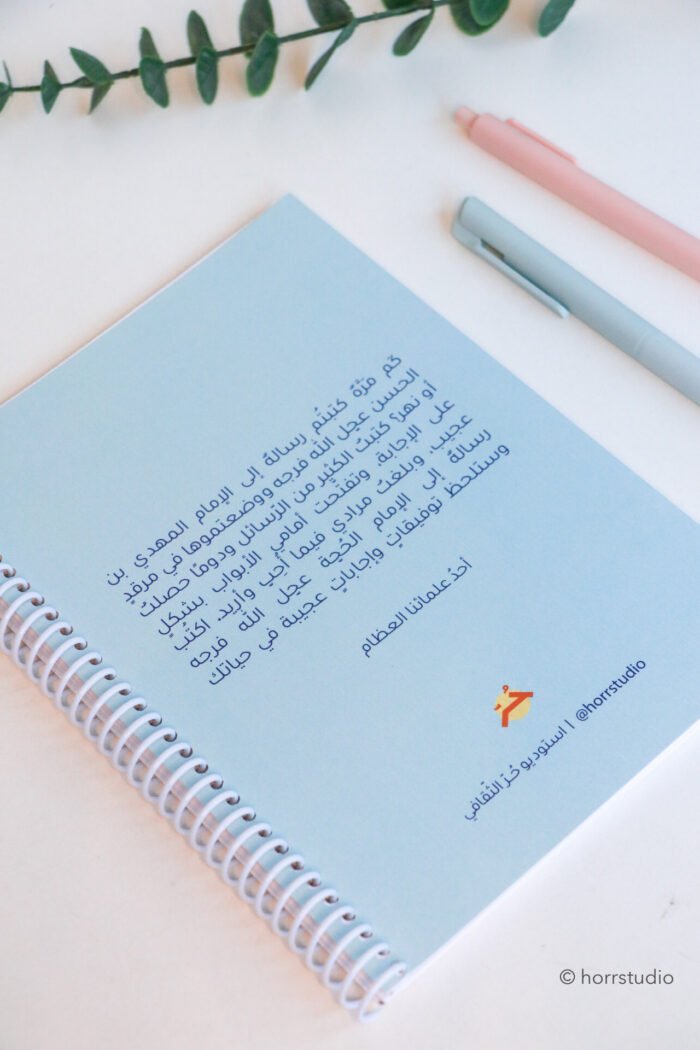 كَم مَرَّةً كتبتُم رسالةً إلى الإمام المهدي بن
الحسن عجل الله فرجه ووضعتموها في مرقدٍ
أو نهر؟ كتبتُ الكثير من الرّسائل ودومًا حصلتُ
على الإجابة، وتفتَّحت أمامي الأبواب بشكلٍ
عجيب، وبلغتُ مرادي فيما أُحب وأريد. اكتُب
رسالةً إلى الإمام الحُجة عجل الله فرجه
وستلحظُ توفيقاتٍ وإجاباتٍ عجيبة في حياتك
أحدُ علمائنا العظام
حُر
استوديو حُرّ الثّقافي | @horrstudio
© horrstudio